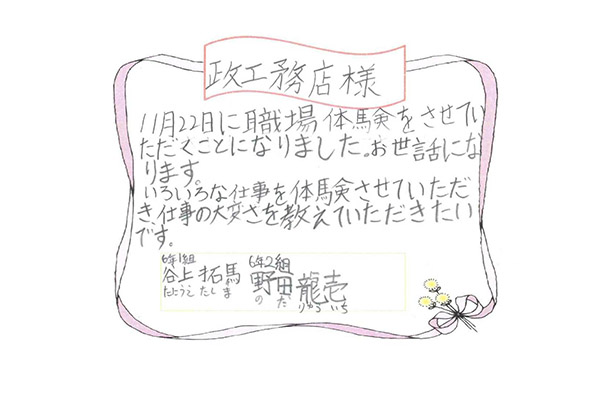 政工務店様
11月22日に職場体験をさせてい
ただくことになりました。お世話にな
ります。
いろいろな仕事を体験させていただ
き、仕事の大変さを教えていただきたい
です。
6年1組 6年2組
谷上拓馬 野田龍壱
たにうえ たしま のだ りゅういち